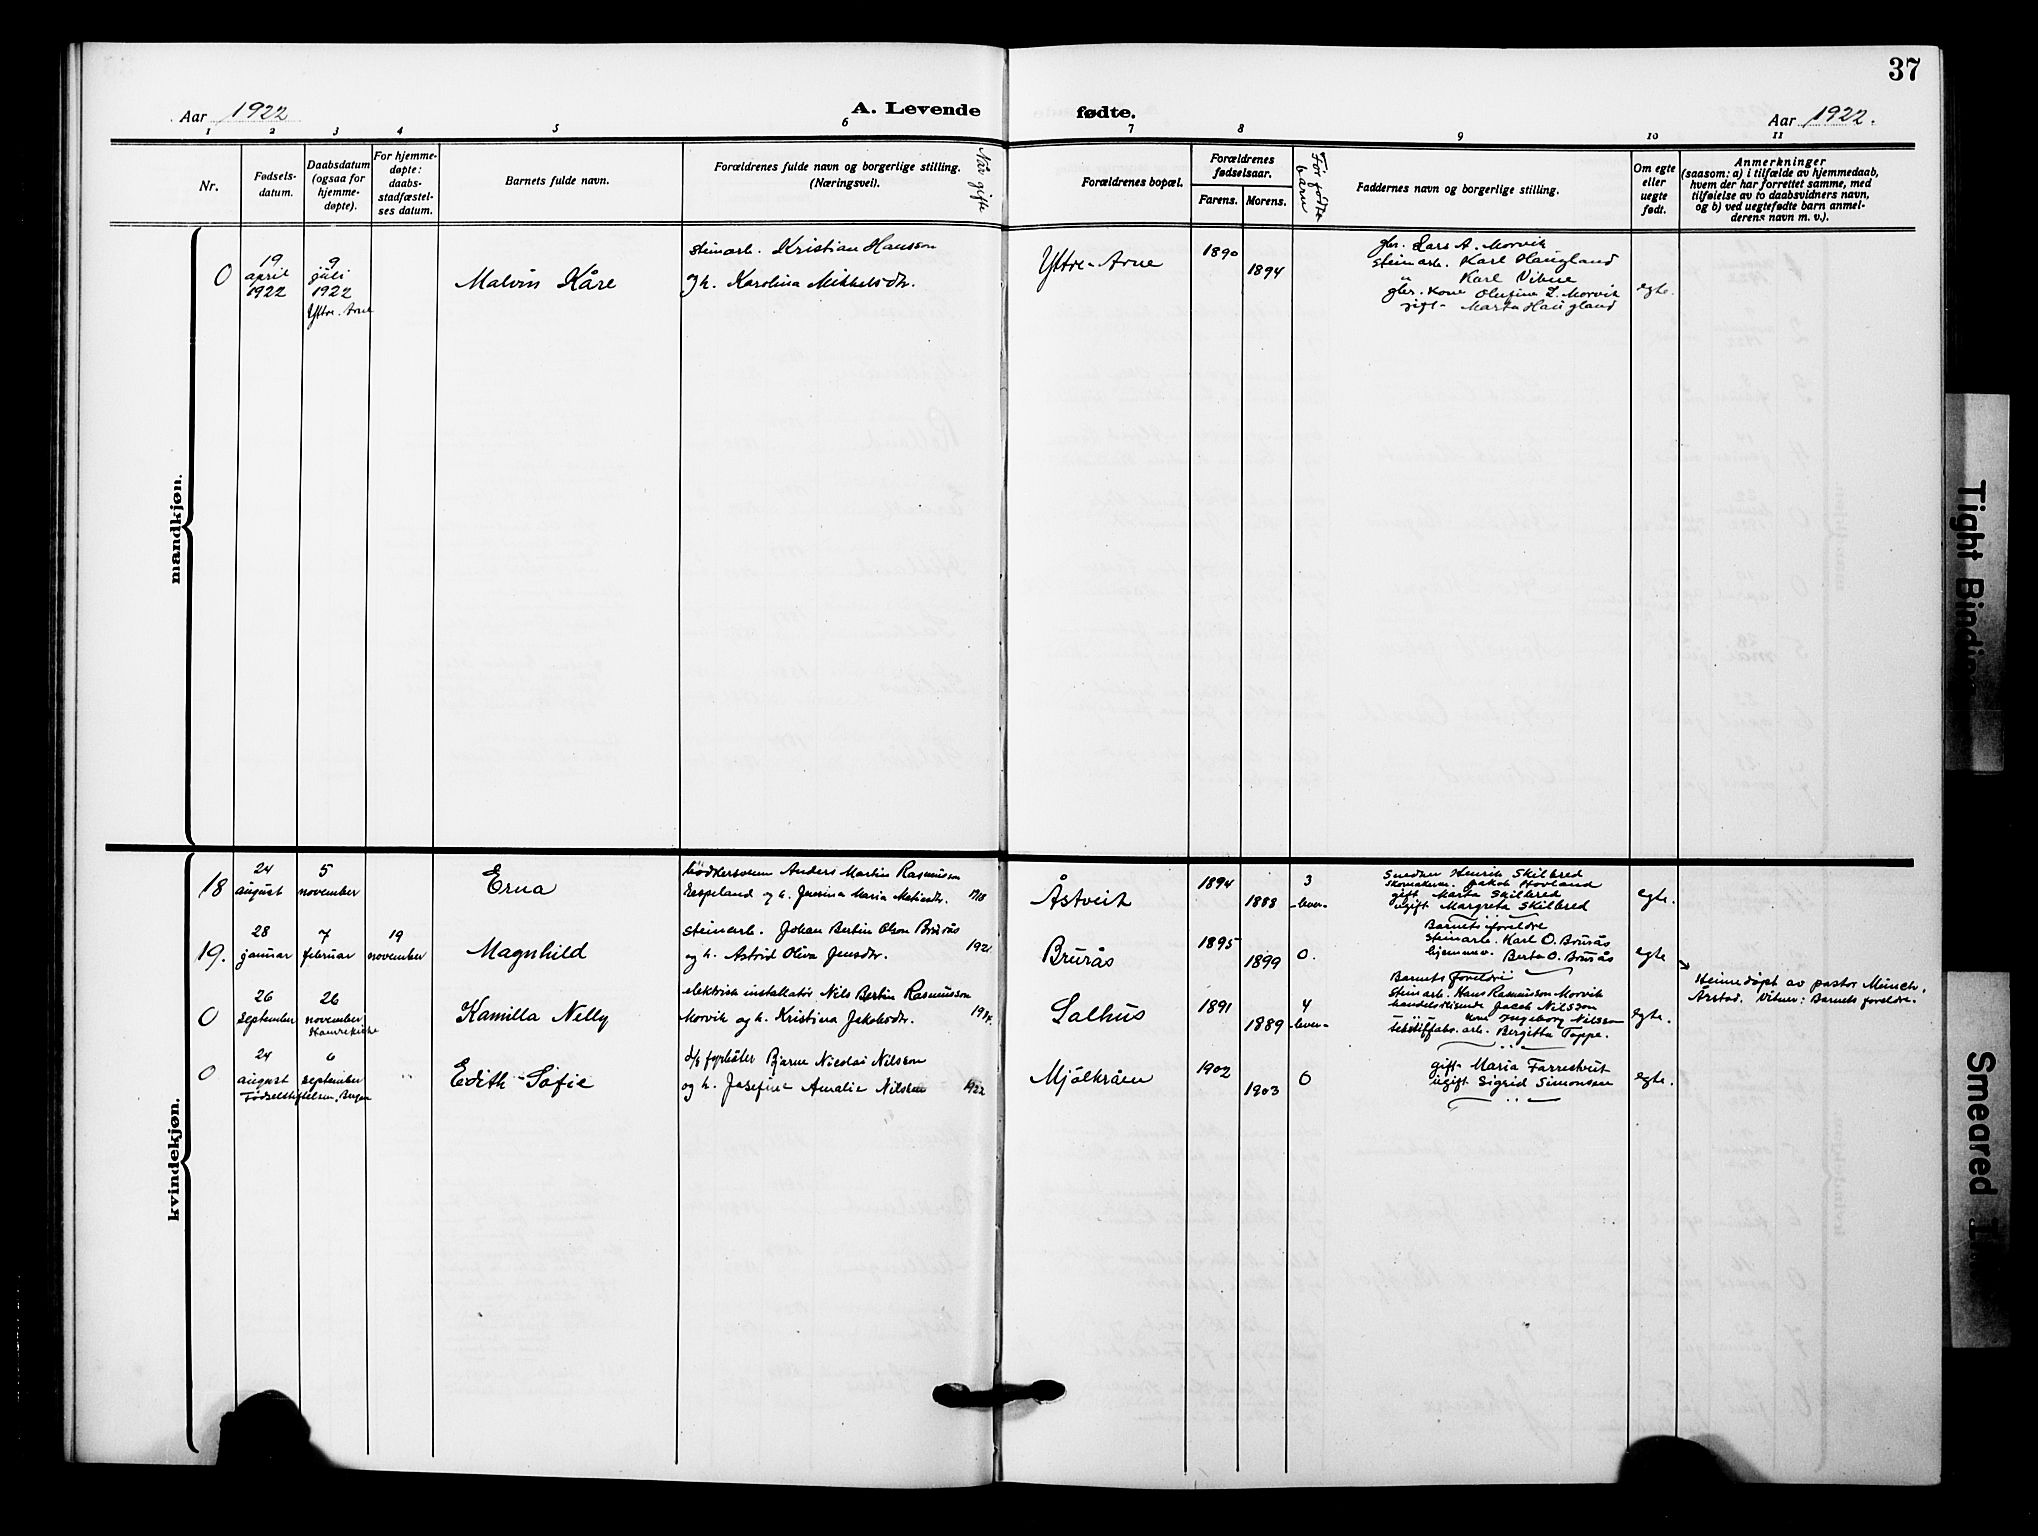 37
Aar 1922
A. Levende
fødte.
Aar 1922.
1 2 3 4 5 6 7 8 9 10 11
Nr.
Fødsels-
datum.
Daabsdatum
(ogsaa for
hjemme-
døpte).
For hjemme-
døpte:
daabs-
stadfæstel-
ses datum.
Barnets fulde navn.
Forældrenes fulde navn og borgerlige stilling.
(Næringsvei).
Når gifte
Forældrenes bopæl.
Forældrenes
fødselsaar.
Farens. Morens.
Før fødte
barn
Faddernes navn og borgerlige stilling.
Om egte
eller
uegte
født.
Anmerkninger
(saasom: a) i tilfælde av hjemmedaab,
hvem der har forrettet samme, med
tilføielse av to daabsvidners navn,
og b) ved uegtefødte barn anmel-
derens navn m. v.).
mandkjøn.
0
19
april
1922
9
juli
1922
Yttre-Arne
Malvin Kåre
steinarb. Kristian Hansson
og h. Karolina Mikkelsdtr.
Yttre-Arne
1890
1894
gbr. Lars A. Morvik
steinarb. Karl Haugland
" Karl Vikne
gbr. kone Olufine L. Morvik
gift Marta Haugland
egte.
kvindekjøn.
18
24
august
5
november
Erna
bödkersvenn Anders Martin Rasmusson
Espeland og h. Jensina Maria Matiasdtr.
1918
Åstveit
1894
1888
3
lever
Smeden Henrik Skilbred
Skomakerm. Jakob Hovland
gift Marta Skilbred
ugift Margreta Skilbred
egte.
19.
28
januar
7
februar
19
november
Magnhild
steinarb. Johan Bertin Olson Brurås
og h. Astrid Oliva Jensdtr.
1921
Brurås
1895
1899
0.
Barnets foreldre
steinarb. Karl O. Brurås
hjemmev. Berta O. Brurås
egte
Heimedöpt av pastor Münch,
Årstad. Vitner: Barnets foreldre.
0
26
september
26
november
Hamrekirke
Kamilla Nelly
elektrisk installatör Nils Bertin Rasmusson
Morvik og h. Kristina Jakobsdtr.
1914.
Salhus
1891
1889
4
lever
Barnets foreldre
Steinarb. Hans Rasmusson Morvik
handelsreisende Jacob Nilsson
kone Ingeborg Nilsson
tekstilfabr. arb. Bergitta Toppe.
egte.
0
24
august
6
september
Fødselstiftelsen, Bergen
Edith Sofie
d/s fyrbøter Bjarne Nicolai Nilsson
og h. Josefine Amalie Nilsen
1922
Mjølkråen
1902
1903
0
gift Maria Farestveit
ugift Sigrid Simonsen
egte.
Tight Bindin
Smeared